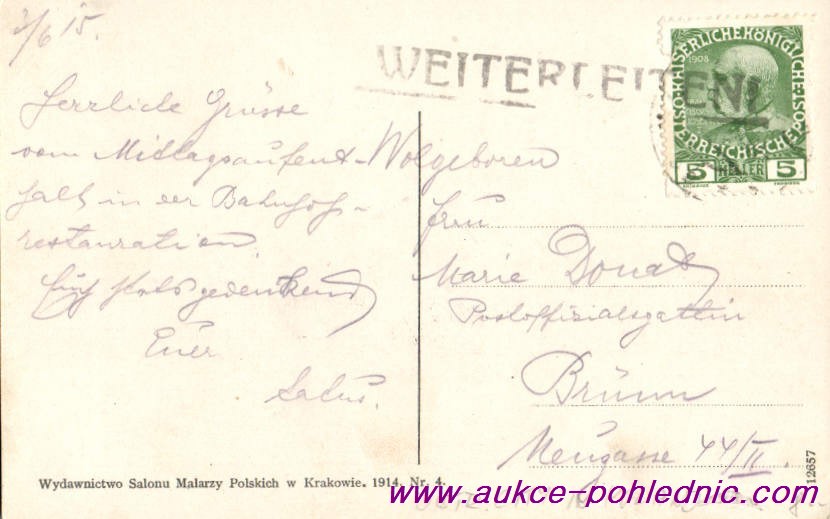 3/6 15.
WEITERLEITEN!
1908
KAISERLICHE KÖNIGLICHE
ÖSTERREICHISCHE POST
5 HELLER 5
Herzliche Grüsse
vom Mittagsaufent-
halt in der Bahnhof-
restauration
Euch stets gedenkend
Euer
Wolgeboren
Frau
Marie Donat
Postoffizialsgattin
Brünn
Neugasse 44/II.
Wydawnictwo Salonu Malarzy Polskich w Krakowie. 1914. Nr. 4.
12657
www.aukce-pohlednic.com